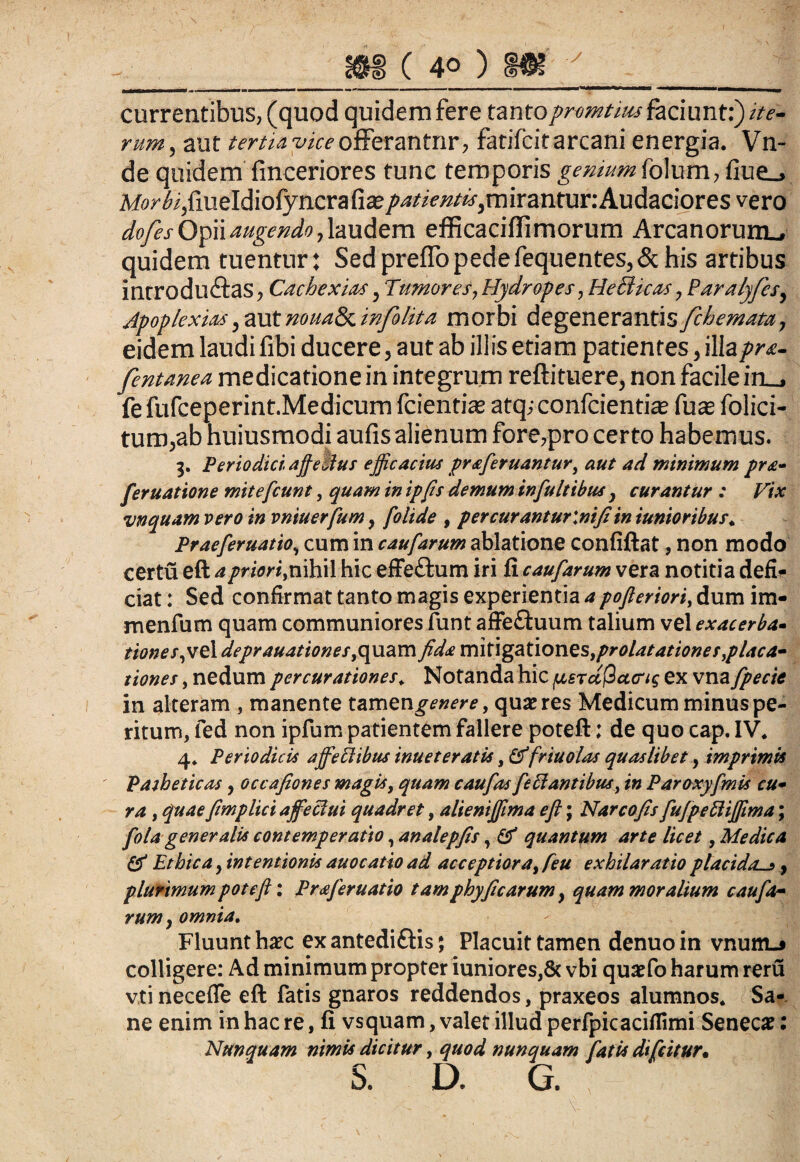 ( 40 )
currentibus, (quod quidem fere tanto promtius faciunt:) ite-
rum, aut tertia vice offerantnr, fatiſcit arcani energia. Vn-
de quidem ſinceriores tunc temporis genium ſolum, ſiue
Morbi, ſiue Idioſyncraſiæ patientis, mirantur: Audaciores vero
doſes Opii augendo, laudem efficaciſſimorum Arcanorum
quidem tuentur: Sed preſſo pede ſequentes, & his artibus
introductas, Cachexias, Tumores, Hydropes, Hecticas, Paralyſes,
Apoplexias, aut noua & inſolita morbi degenerantis ſchemata,
eidem laudi ſibi ducere, aut ab illis etiam patientes, illa præ-
ſentanea medicatione in integrum reſtituere, non facile in
ſe ſuſceperint. Medicum ſcientiæ atq; conſcientiæ ſuæ ſolici-
tum, ab huiusmodi auſis alienum fore, pro certo habemus.
3. Periodici affectus efficacius præſeruantur, aut ad minimum præ-
ſeruatione miteſcunt, quam in ipſis demum inſultibus, curantur: Vix
vnquam vero in vniuerſum, ſolide, percurantur: niſi in iunioribus.
Praeſeruatio, cum in cauſarum ablatione conſiſtat, non modo
certũ eſt a priori, nihil hic effectum iri ſi cauſarum vera notitia defi-
ciat: Sed confirmat tanto magis experientia a poſteriori, dum im-
menſum quam communiores ſunt affectuum talium vel exacerba-
tiones, vel deprauationes, quam fidæ mitigationes, prolatationes, placa-
tiones, nedum percurationes. Notanda hic μετάβασις ex vna ſpecie
in alteram, manente tamen genere, quæ res Medicum minus pe-
ritum, ſed non ipſum patientem fallere poteſt: de quo cap. IV.
4. Periodicis affectibus inueteratis, & friuolas quaslibet, imprimis
Patheticas, occaſiones magis, quam cauſas ſectantibus, in Paroxyſmis cu-
ra, quae ſimplici affectui quadret, alieniſſima eſt; Narcoſis ſuſpectiſſima;
ſola generalis contemperatio, analepſis, & quantum arte licet, Medica
& Ethica, intentionis auocatio ad acceptiora, ſeu exhilaratio placida,
plurimum poteſt: Præſeruatio tam phyſicarum, quam moralium cauſa-
rum, omnia.
Fluunt hæc ex antedictis; Placuit tamen denuo in vnum
colligere: Ad minimum propter iuniores, & vbi quæſo harum rerũ
vti neceſſe eſt ſatis gnaros reddendos, praxeos alumnos. Sa-
ne enim in hac re, ſi vsquam, valet illud perſpicaciſſimi Senecæ:
Nunquam nimis dicitur, quod nunquam ſatis diſcitur.
S. D. G.